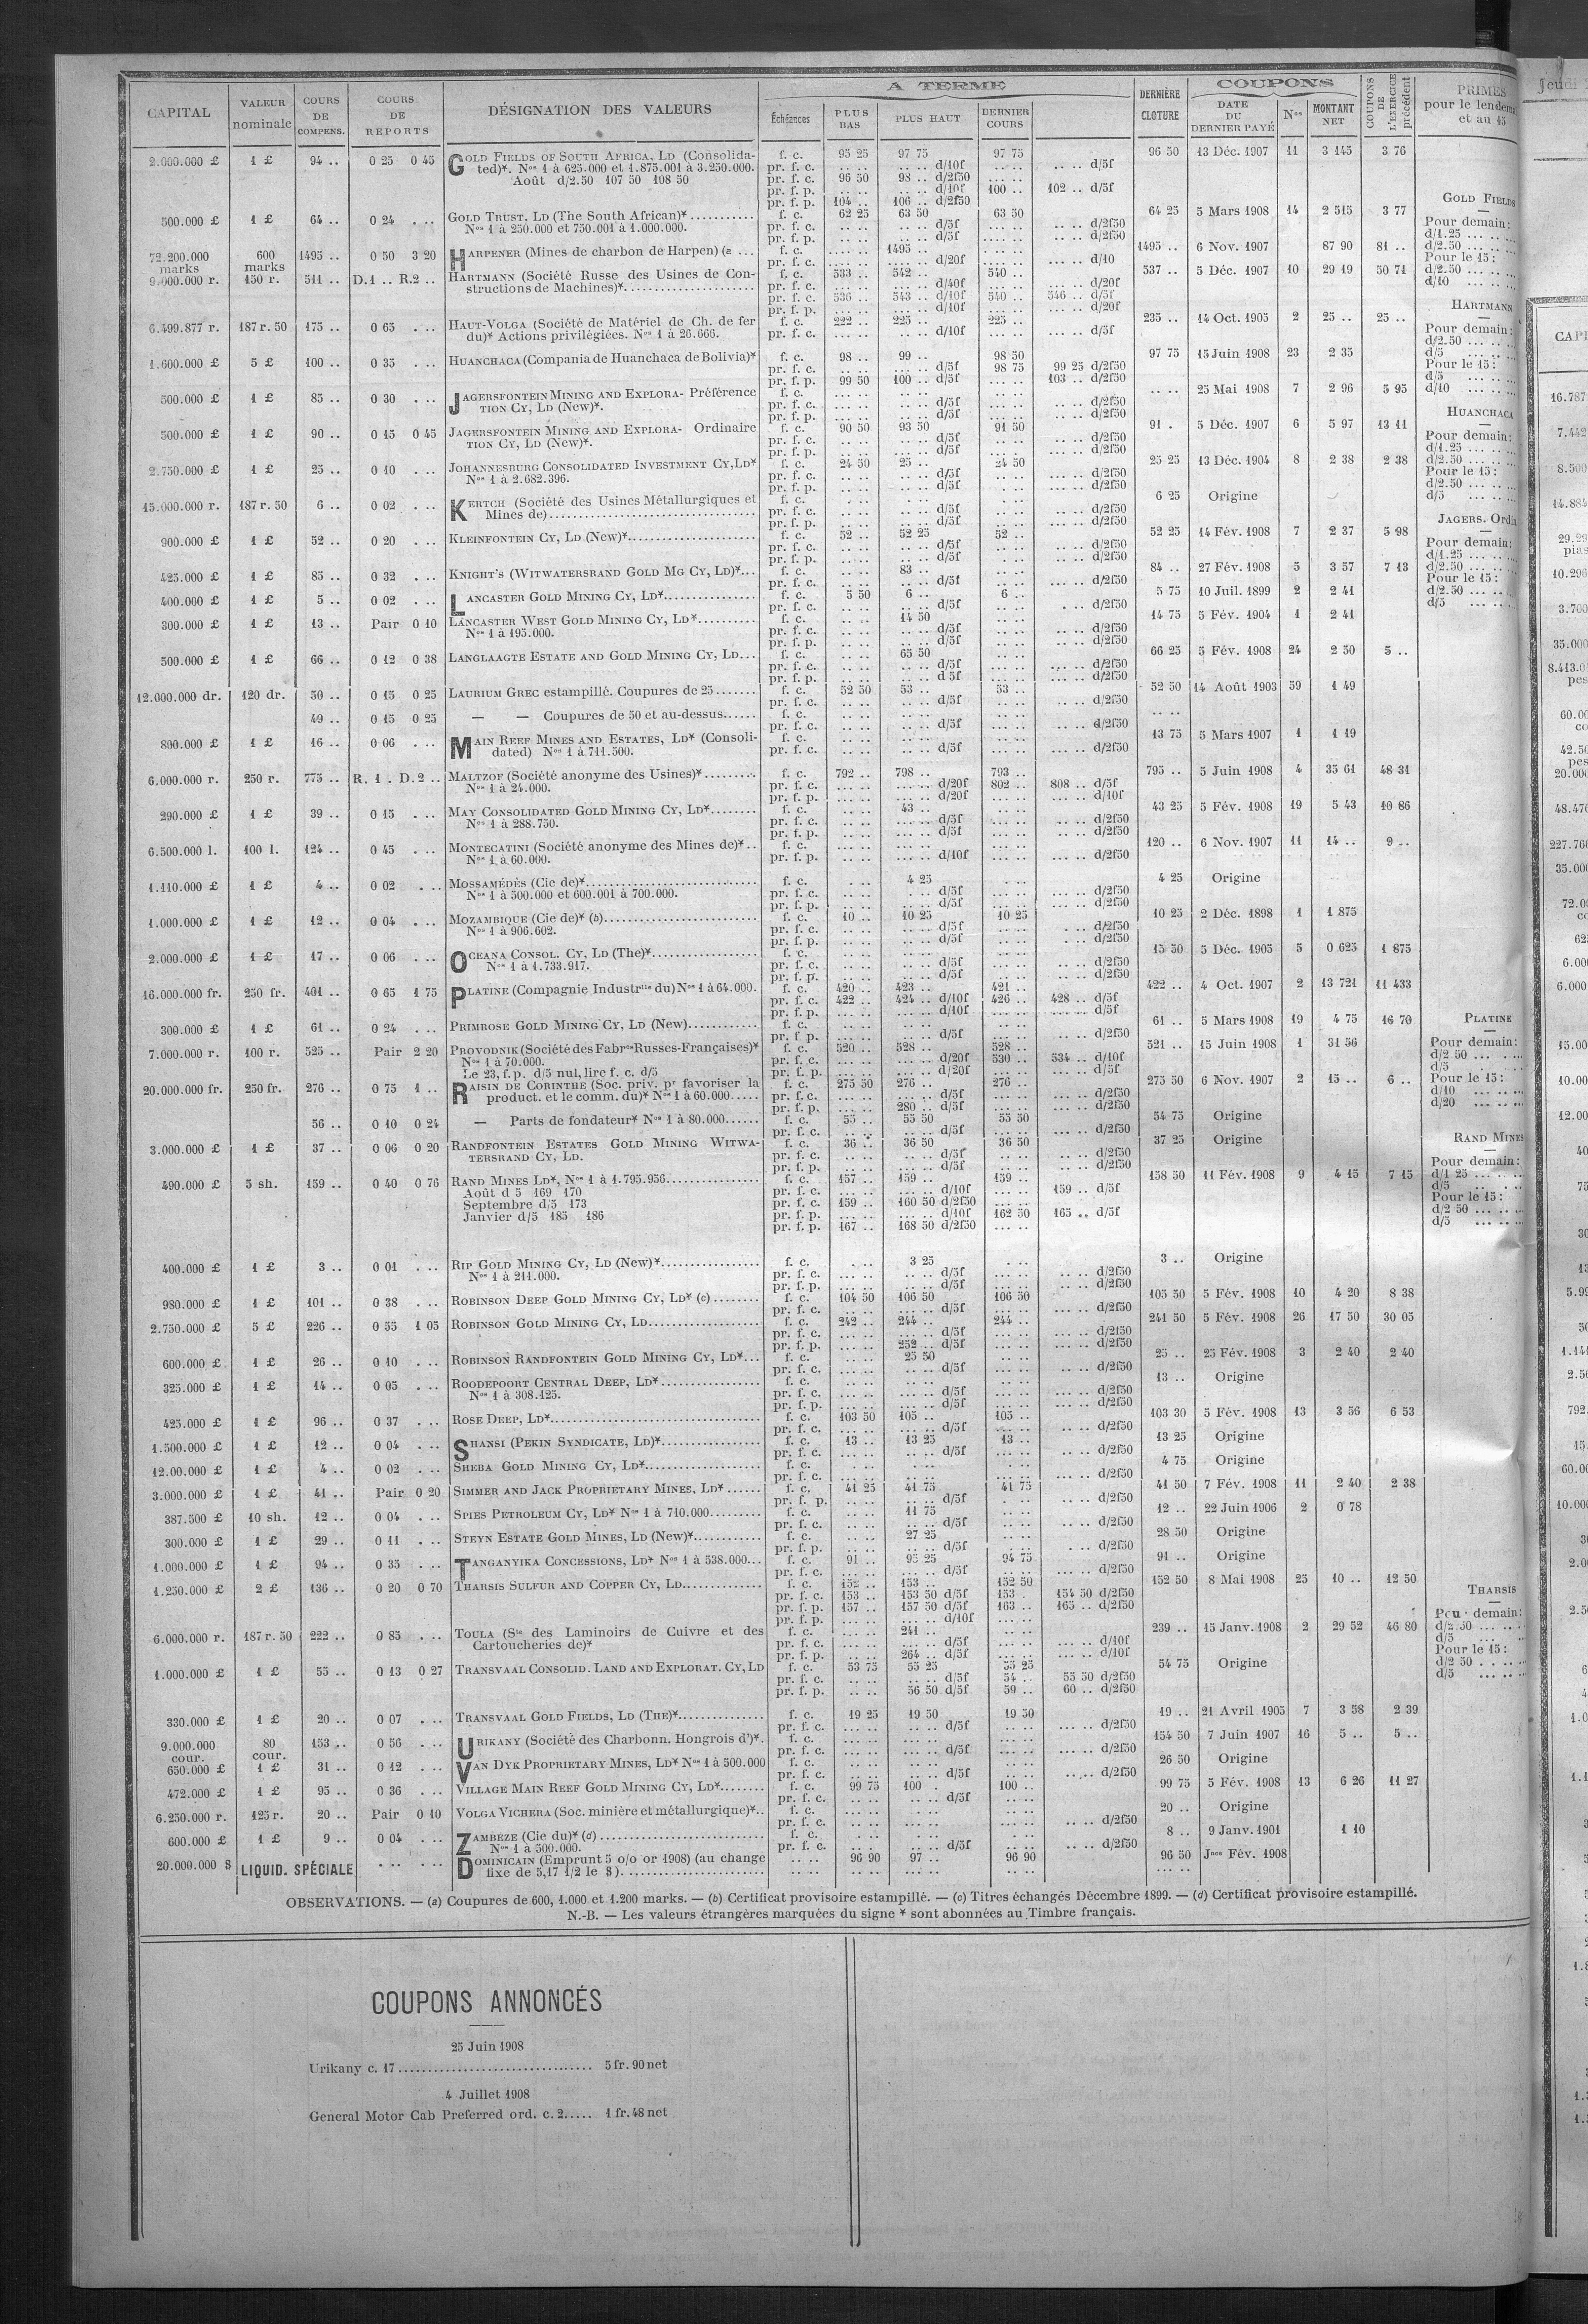 CAPITAL | VALEUR nominale | COURS DE COMPENS. | COURS DE REPORTS | DÉSIGNATION DES VALEURS | A TERME | DERNIÈRE CLOTURE | COUPONS | COUPONS DE L'EXERCICE précédent | PRIMES
Échéances | PLUS BAS | PLUS HAUT | DERNIER COURS | DATE DU DERNIER PAYÉ | Nos | MONTANT NET | pour le et au 15
2.000.000 £ 1 £ 94 .. 0 25 0 45 GOLD FIELDS OF SOUTH AFRICA, LD (Consolida- f. c. 95 25 97 75 97 75 96 50 13 Déc. 1907 11 3 145 3 76
ted)*. Nos 1 à 625.000 et 1.875.001 à 3.250.000. pr. f. c. .. .. .. .. d/10f .. .. .. .. d/5f
Août d/2.50 107 50 108 50 pr. f. c. 96 50 98 .. d/2f50 .. ..
pr. f. p. .. .. .. .. d/10f 100 .. 102 .. d/5f
pr. f. p. 104 .. 106 .. d/2f50
500.000 £ 1 £ 64 .. 0 24 . .. GOLD TRUST, LD (The South African)* f. c. 62 25 63 50 63 50 64 25 5 Mars 1908 14 2 515 3 77
Nos 1 à 250.000 et 750.001 à 1.000.000. pr. f. c. .. .. .. .. d/5f .. .. .. .. d/2f50
pr. f. p. .. .. .. .. d/5f .. .. .. .. d/2f50
72.200.000 marks 600 marks 1495 .. 0 50 3 20 HARPENER (Mines de charbon de Harpen) (a ... f. c. .... .. 1495 .. .... .. 1495 .. 6 Nov. 1907 87 90 81 ..
pr. f. c. .... .. .... .. d/20f .... .. .... .. d/10
9.000.000 r. 150 r. 511 .. D.1 .. R.2 .. HARTMANN (Société Russe des Usines de Con- f. c. 533 .. 542 .. 540 .. 537 .. 5 Déc. 1907 10 29 19 50 71
structions de Machines)* pr. f. c. ... .. ... .. d/40f ... .. ... .. d/20f
pr. f. c. 536 .. 543 .. d/10f 540 .. 546 .. d/5f
pr. f. p. ... .. ... .. d/10f ... .. ... .. d/20f
6.499.877 r. 187 r. 50 175 .. 0 65 . .. HAUT-VOLGA (Société de Matériel de Ch. de fer f. c. 222 .. 225 .. 225 .. 235 .. 14 Oct. 1905 2 25 .. 25 ..
du)* Actions privilégiées. Nos 1 à 26.666. pr. f. c. ... .. ... .. d/10f ... .. d/5f
1.600.000 £ 5 £ 100 .. 0 35 . .. HUANCHACA (Compania de Huanchaca de Bolivia)* f. c. 98 .. 99 .. 98 50 97 75 15 Juin 1908 23 2 35
pr. f. c. .. .. .. .. d/5f 98 75 99 25 d/2f50
pr. f. p. 99 50 100 .. d/5f ... .. 103 .. d/2f50
500.000 £ 1 £ 85 .. 0 30 . .. JAGERSFONTEIN MINING AND EXPLORA- Préférence f. c. ... .. ... .. ... .. ... .. 25 Mai 1908 7 2 96 5 95
TION CY, LD (New)*. pr. f. c. ... .. ... .. d/5f ... .. .. .. d/2f50
pr. f. p. ... .. ... .. d/5f ... .. .. .. d/2f50
500.000 £ 1 £ 90 .. 0 15 0 45 JAGERSFONTEIN MINING AND EXPLORA- Ordinaire f. c. 90 50 93 50 91 50 91 . 5 Déc. 1907 6 5 97 13 11
TION CY, LD (New)*. pr. f. c. ... .. ... .. d/5f ... .. .. .. d/2f50
pr. f. p. .. .. .. .. d/5f
2.750.000 £ 1 £ 25 .. 0 10 . .. JOHANNESBURG CONSOLIDATED INVESTMENT CY, LD* f. c. 24 50 25 .. 24 50 25 25 13 Déc. 1904 8 2 38 2 38
Nos 1 à 2.682.396. pr. f. c. .. .. .. .. d/5f .. .. .. .. d/2f50
pr. f. p. .. .. .. .. d/5f .. .. .. .. d/2f50
15.000.000 r. 187 r. 50 6 .. 0 02 . .. KERTCH (Société des Usines Métallurgiques et f. c. 6 25 Origine
Mines de) pr. f. c. .. .. .. .. d/5f .. .. .. .. d/2f50
pr. f. p. .. .. .. .. d/5f .. .. .. .. d/2f50
900.000 £ 1 £ 52 .. 0 20 . .. KLEINFONTEIN CY, LD (New)* f. c. 52 .. 52 25 52 .. 52 25 14 Fév. 1908 7 2 37 5 98
pr. f. c. .. .. .. .. d/5f .. .. .. .. d/2f50
pr. f. p. .. .. .. .. d/5f .. .. .. .. d/2f50
425.000 £ 1 £ 85 .. 0 32 . .. KNIGHT'S (WITWATERSRAND GOLD MG CY, LD)* f. c. .. .. 83 .. .. .. 84 .. 27 Fév. 1908 5 3 57 7 13
pr. f. c. .. .. .. .. d/5f .. .. .. .. d/2f50
400.000 £ 1 £ 5 .. 0 02 . .. LANCASTER GOLD MINING CY, LD* f. c. 5 50 6 .. 6 .. 5 75 10 Juil. 1899 2 2 41
pr. f. c. .. .. .. .. d/5f . .. d/2f50
300.000 £ 1 £ 13 .. Pair 0 10 LANCASTER WEST GOLD MINING CY, LD* f. c. .. .. 14 50 .. .. 14 75 5 Fév. 1904 1 2 41
Nos 1 à 195.000. pr. f. c. .. .. .. .. d/5f .. .. .. .. d/2f50
pr. f. p. .. .. .. .. d/5f .. .. .. .. d/2f50
500.000 £ 1 £ 66 .. 0 12 0 38 LANGLAAGTE ESTATE AND GOLD MINING CY, LD... f. c. .. .. 65 50 .. .. 66 25 5 Fév. 1908 24 2 50 5 ..
pr. f. c. .. .. .. .. d/5f ... .. ... .. d/2f50
pr. f. p. .. .. .. .. d 5f ... .. ... .. d/2f50
12.000.000 dr. 120 dr. 50 .. 0 15 0 25 LAURIUM GREC estampillé. Coupures de 25 f. c. 52 50 53 .. 53 .. 52 50 14 Août 1903 59 1 49
pr. f. c. .. .. .. .. d/5f .. .. .. .. d/2f50
49 .. 0 15 0 25 — — Coupures de 50 et au-dessus f. c. .. .. .. .. .. .. .. ..
pr. f. c. .. .. .. .. d/5f .. .. .. .. d/2f50
800.000 £ 1 £ 16 .. 0 06 . .. MAIN REEF MINES AND ESTATES, LD* (Consoli- f. c. .. .. .. .. .. .. 13 75 5 Mars 1907 1 1 19
dated) Nos 1 à 711.500. pr. f. c. .. .. .. .. d/5f d/2f50
6.000.000 r. 250 r. 775 .. R. 1 . D. 2 .. MALTZOF (Société anonyme des Usines)* f. c. 792 .. 798 .. 793 .. 795 .. 5 Juin 1908 4 35 61 48 31
Nos 1 à 24.000. pr. f. c. ... .. ... .. d/20f 802 .. 808 .. d/5f
pr. f. p. ... .. ... .. d/20f ... .. ... .. d/10f
290.000 £ 1 £ 39 .. 0 15 . .. MAY CONSOLIDATED GOLD MINING CY, LD* f. c. .. .. 43 .. .. .. 43 25 5 Fév. 1908 19 5 43 10 86
Nos 1 à 288.750. pr. f. c. .. .. ... .. d/5f .. .. ... .. d/2f50
pr. f. p. .. .. ... .. d/5f .. .. ... .. d/2f50
6.500.000 l. 100 l. 124 .. 0 45 . .. MONTECATINI (Société anonyme des Mines de)* f. c. 120 .. 6 Nov. 1907 11 14 .. 9 ..
Nos 1 à 60.000. pr. f. p. .. .. ... .. d/10f ... .. ... .. d/2f50
1.110.000 £ 1 £ 4 .. 0 02 . .. MOSSAMÉDÈS (Cie de)* f. c. . .. 4 25 . .. 4 25 Origine
Nos 1 à 500.000 et 600.001 à 700.000. pr. f. c. .. .. .. .. d/5f ... .. ... .. d/2f50
pr. f. p. .. .. .. .. d/5f ... .. ... .. d/2f50
1.000.000 £ 1 £ 12 .. 0 04 . .. MOZAMBIQUE (Cie de)* (b) f. c. 10 .. 10 25 10 25 10 25 2 Déc. 1898 1 1 875
Nos 1 à 906.602. pr. f. c. .. .. .. .. d/5f .. .. . .. d/2f50
pr. f. p. .. .. .. .. d/5f .. .. .. .. d/2f50
2.000.000 £ 1 £ 17 .. 0 06 . .. OCEANA CONSOL. CY, LD (The)* f. c. 15 50 5 Déc. 1905 5 0 625 1 875
Nos 1 à 1.733.917. pr. f. c. .. .. .. .. d/5f .. .. .. .. d/2f50
pr. f. p. .. .. .. .. d/5f .. .. .. .. d/2f50
16.000.000 fr. 250 fr. 401 .. 0 65 1 75 PLATINE (Compagnie Industrlle du) Nos 1 à 64.000. f. c. 420 .. 423 .. 421 .. 422 .. 4 Oct. 1907 2 13 721 11 433
pr. f. c. 422 .. 424 .. d/10f 426 .. 428 .. d/5f
pr. f. p. .. .. ... .. d/10f ... .. ... .. d/5f
300.000 £ 1 £ 61 .. 0 24 . .. PRIMROSE GOLD MINING CY, LD (New) f. c. .. .. .. .. .. .. 61 .. 5 Mars 1908 19 4 75 16 70
pr. f. p. .. .. .. .. d/5f .. .. .. .. d/2f50
7.000.000 r. 100 r. 525 .. Pair 2 20 PROVODNIK (Société des Fabres Russes-Françaises)* f. c. 520 .. 528 .. 528 .. 521 .. 15 Juin 1908 1 31 56
Nos 1 à 70.000. pr. f. c. ... .. ... .. d/20f 530 .. 534 .. d/10f
Le 23, f. p. d/5 nul, lire f. c. d/5 pr. f. p. ... .. ... .. d/20f ... .. ... .. d/5f
20.000.000 fr. 250 fr. 276 .. 0 75 1 .. RAISIN DE CORINTHE (Soc. priv. pr favoriser la f. c. 275 50 276 .. 276 .. 275 50 6 Nov. 1907 2 15 .. 6 ..
product. et le comm. du)* Nos 1 à 60.000 pr. f. c. ... .. ... .. d/5f ... .. ... .. d/2f50
pr. f. p. ... .. 280 .. d/5f ... .. ... .. d/2f50
56 .. 0 10 0 24 — Parts de fondateur* Nos 1 à 80.000 f. c. 55 .. 55 50 55 50 54 75 Origine
pr. f. c. .. .. ... .. d/5f .. .. ... .. d/2f50
3.000.000 £ 1 £ 37 .. 0 06 0 20 RANDFONTEIN ESTATES GOLD MINING WITWA- f. c. 36 .. 36 50 36 50 37 25 Origine
TERSRAND CY, LD. pr. f. c. .. .. .. .. d/5f .. .. .. .. d/2f50
pr. f. p. .. .. .. .. d/5f .. .. .. .. d/2f50
490.000 £ 5 sh. 159 .. 0 40 0 76 RAND MINES LD*, Nos 1 à 1.795.956 f. c. 157 .. 159 .. 159 .. 158 50 11 Fév. 1908 9 4 15 7 15
Août d 5 169 170 pr. f. c. ... .. ... .. d/10f ... .. 159 .. d/5f
Septembre d/5 173 pr. f. c. 159 .. 160 50 d/2f50 ... ..
Janvier d/5 185 186 pr. f. p. ... .. ... .. d/10f 162 50 165 .. d/5f
pr. f. p. 167 .. 168 50 d/2f50 ... ..
400.000 £ 1 £ 3 .. 0 01 . .. RIP GOLD MINING CY, LD (New)* f. c. . .. 3 25 . .. 3 .. Origine
Nos 1 à 211.000. pr. f. c. ... .. .. .. d/5f ... .. .. .. d/2f50
pr. f. p. ... .. .. .. d/5f ... .. .. .. d/2f50
980.000 £ 1 £ 101 .. 0 38 . .. ROBINSON DEEP GOLD MINING CY, LD* (c) f. c. 104 50 106 50 106 50 105 50 5 Fév. 1908 10 4 20 8 38
pr. f. c. ... .. ... .. d/5f ... .. ... .. d/2f50
2.750.000 £ 5 £ 226 .. 0 55 1 05 ROBINSON GOLD MINING CY, LD f. c. 242 .. 244 .. 244 .. 241 50 5 Fév. 1908 26 17 50 30 05
pr. f. c. ... .. ... .. d/5f ... .. ... .. d/2f50
pr. f. p. ... .. 252 .. d/5f ... .. ... .. d/2f50
600.000 £ 1 £ 26 .. 0 10 . .. ROBINSON RANDFONTEIN GOLD MINING CY, LD* f. c. .. .. 25 50 .. .. 25 .. 25 Fév. 1908 3 2 40 2 40
pr. f. c. ... .. ... .. d/5f ... .. ... .. d/2f50
325.000 £ 1 £ 14 .. 0 05 . .. ROODEPOORT CENTRAL DEEP, LD* f. c. .. .. .. .. .. .. 13 .. Origine
Nos 1 à 308.125. pr. f. c. ... .. ... .. d/5f ... .. ... .. d/2f50
pr. f. p. ... .. ... .. d/5f ... .. ... .. d/2f50
425.000 £ 1 £ 96 .. 0 37 . .. ROSE DEEP, LD* f. c. 103 50 105 .. 105 .. 103 30 5 Fév. 1908 13 3 56 6 53
pr. f. c. ... .. ... .. d/5f ... .. ... .. d/2f50
1.500.000 £ 1 £ 12 .. 0 04 . .. SHANSI (PEKIN SYNDICATE, LD)* f. c. 13 .. 13 25 13 .. 13 25 Origine
pr. f. c. .. .. .. .. d/5f .. .. .. .. d/2f50
12.00.000 £ 1 £ 4 .. 0 02 . .. SHEBA GOLD MINING CY, LD* f. c. . .. . .. . .. 4 75 Origine
pr. f. c. ... .. .. .. ... .. .. .. d/2f50
3.000.000 £ 1 £ 41 .. Pair 0 20 SIMMER AND JACK PROPRIETARY MINES, LD* f. c. 41 25 41 75 41 75 41 50 7 Fév. 1908 11 2 40 2 38
pr. f. p. .. .. .. .. d/5f . .. .. .. d/2f50
387.500 £ 10 sh. 12 .. 0 04 . .. SPIES PETROLEUM CY, LD* Nos 1 à 710.000 f. c. .. .. 11 75 .. .. 12 .. 22 Juin 1906 2 0 78
pr. f. c. .. .. .. .. d/5f .. .. .. .. d/2f50
300.000 £ 1 £ 29 .. 0 11 . .. STEYN ESTATE GOLD MINES, LD (New)* f. c. .. .. 27 25 .. .. 28 50 Origine
pr. f. p. .. .. .. .. d/5f . .. . .. d/2f50
1.000.000 £ 1 £ 94 .. 0 35 . .. TANGANYIKA CONCESSIONS, LD* Nos 1 à 538.000... f. c. 91 .. 95 25 94 75 91 .. Origine
pr. f. c. .. .. .. .. d/5f ... .. .. .. d/2f50
1.250.000 £ 2 £ 136 .. 0 20 0 70 THARSIS SULFUR AND COPPER CY, LD f. c. 152 .. 153 .. 152 50 152 50 8 Mai 1908 25 10 .. 12 50
pr. f. c. 153 .. 153 50 d/5f 153 . 154 50 d/2f50
pr. f. p. 157 .. 157 50 d/5f 163 .. 165 .. d/2f50
pr. f. p. ... .. ... .. d/10f ... ..
6.000.000 r. 187 r. 50 222 .. 0 85 . .. TOULA (Sté des Laminoirs de Cuivre et des f. c. ... .. 241 .. ... .. 239 .. 15 Janv. 1908 2 29 52 46 80
Cartoucheries de)* pr. f. c. ... .. ... .. d/5f ... .. ... .. d/10f
pr. f. p. ... .. 264 .. d/5f ... .. ... .. d/10f
1.000.000 £ 1 £ 55 .. 0 13 0 27 TRANSVAAL CONSOLID. LAND AND EXPLORAT. CY, LD f. c. 53 75 55 25 55 25 54 75 Origine
pr. f. c. .. .. .. .. d/5f 54 .. 55 50 d/2f50
pr. f. p. .. .. 56 50 d/5f 59 .. 60 .. d/2f50
330.000 £ 1 £ 20 .. 0 07 . .. TRANSVAAL GOLD FIELDS, LD (THE)* f. c. 19 25 19 50 19 50 19 .. 21 Avril 1905 7 3 58 2 39
pr. f. c. .. .. .. .. d/5f .. .. ... .. d/2f50
9.000.000 cour. 80 cour. 153 .. 0 56 . .. URIKANY (Société des Charbonn. Hongrois d')*. f. c. ... .. ... .. ... .. 154 50 7 Juin 1907 16 5 .. 5 ..
pr. f. c. ... .. ... .. d/5f ... .. ... .. d/2f50
650.000 £ 1 £ 31 .. 0 12 . .. VAN DYK PROPRIETARY MINES, LD* Nos 1 à 500.000 f. c. .. .. .. .. .. .. 26 50 Origine
pr. f. c. .. .. .. .. d/5f .. .. .. .. d/2f50
472.000 £ 1 £ 95 .. 0 36 . .. VILLAGE MAIN REEF GOLD MINING CY, LD* f. c. 99 75 100 . 100 .. 99 75 5 Fév. 1908 13 6 26 11 27
pr. f. c. .. .. .. .. d/5f
6.250.000 r. 125 r. 20 .. Pair 0 10 VOLGA VICHERA (Soc. minière et métallurgique)*.. f. c. ... .. .. .. .. .. 20 .. Origine
pr. f. c. ... .. .. .. d/2f50
600.000 £ 1 £ 9 .. 0 04 . .. ZAMBEZE (Cie du)* (d) f. c. . .. . .. . .. 8 .. 9 Janv. 1901 1 10
Nos 1 à 500.000. pr. f. c. . .. .. .. d/5f . .. .. .. d/2f50
20.000.000 $ LIQUID. SPÉCIALE DOMINICAIN (Emprunt 5 o/o or 1908) (au change 96 90 97 .. 96 90 96 50 Jnce Fév. 1908
fixe de 5,17 1/2 le $)
GOLD FIELDS
—
Pour demain:
d/1.25 ... ..
d/2.50 ... ..
Pour le 15:
d/2.50 ... ..
d/10 ... ..
HARTMANN
—
Pour demain:
d/2.50 ... ..
d/5 ... ..
Pour le 15:
d/5 ... ..
d/10 ... ..
HUANCHACA
—
Pour demain:
d/1.25 ... ..
d/2.50 ... ..
Pour le 15:
d/2.50 ... ..
d/5 ... ..
JAGERS. Ordin
—
Pour demain:
d/1.25 ... ..
d/2.50 ... ..
Pour le 15:
d/2.50 ... ..
d/5 ... ..
PLATINE
—
Pour demain:
d/2 50 ... ..
d/5
Pour le 15:
d/10 ... ..
d/20 ... ..
RAND MINES
—
Pour demain:
d/1 25 ... ..
d/5
Pour le 15:
d/2 50 ... ..
d/5 ... ..
THARSIS
—
Pou demain:
d/2.50 ... ..
d/5
Pour le 15:
d/2 50 ... ..
d/5 ... ..
OBSERVATIONS. — (a) Coupures de 600, 1.000 et 1.200 marks. — (b) Certificat provisoire estampillé. — (c) Titres échangés Décembre 1899. — (d) Certificat provisoire estampillé.
N.-B. — Les valeurs étrangères marquées du signe * sont abonnées au Timbre français.
COUPONS ANNONCÉS
25 Juin 1908
Urikany c. 17 5 fr. 90 net
4 Juillet 1908
General Motor Cab Preferred ord. c. 2..... 1 fr. 48 net
Jeudi
CAPI
16.787
7.442
8.500
14.884
29.29
pias
10.296
3.700
35.000
8.413.0
pes
60.00
co
42.50
pes
20.000
48.470
227.760
35.000
72.00
co
625
6.000
6.000
15.00
10.00
12.00